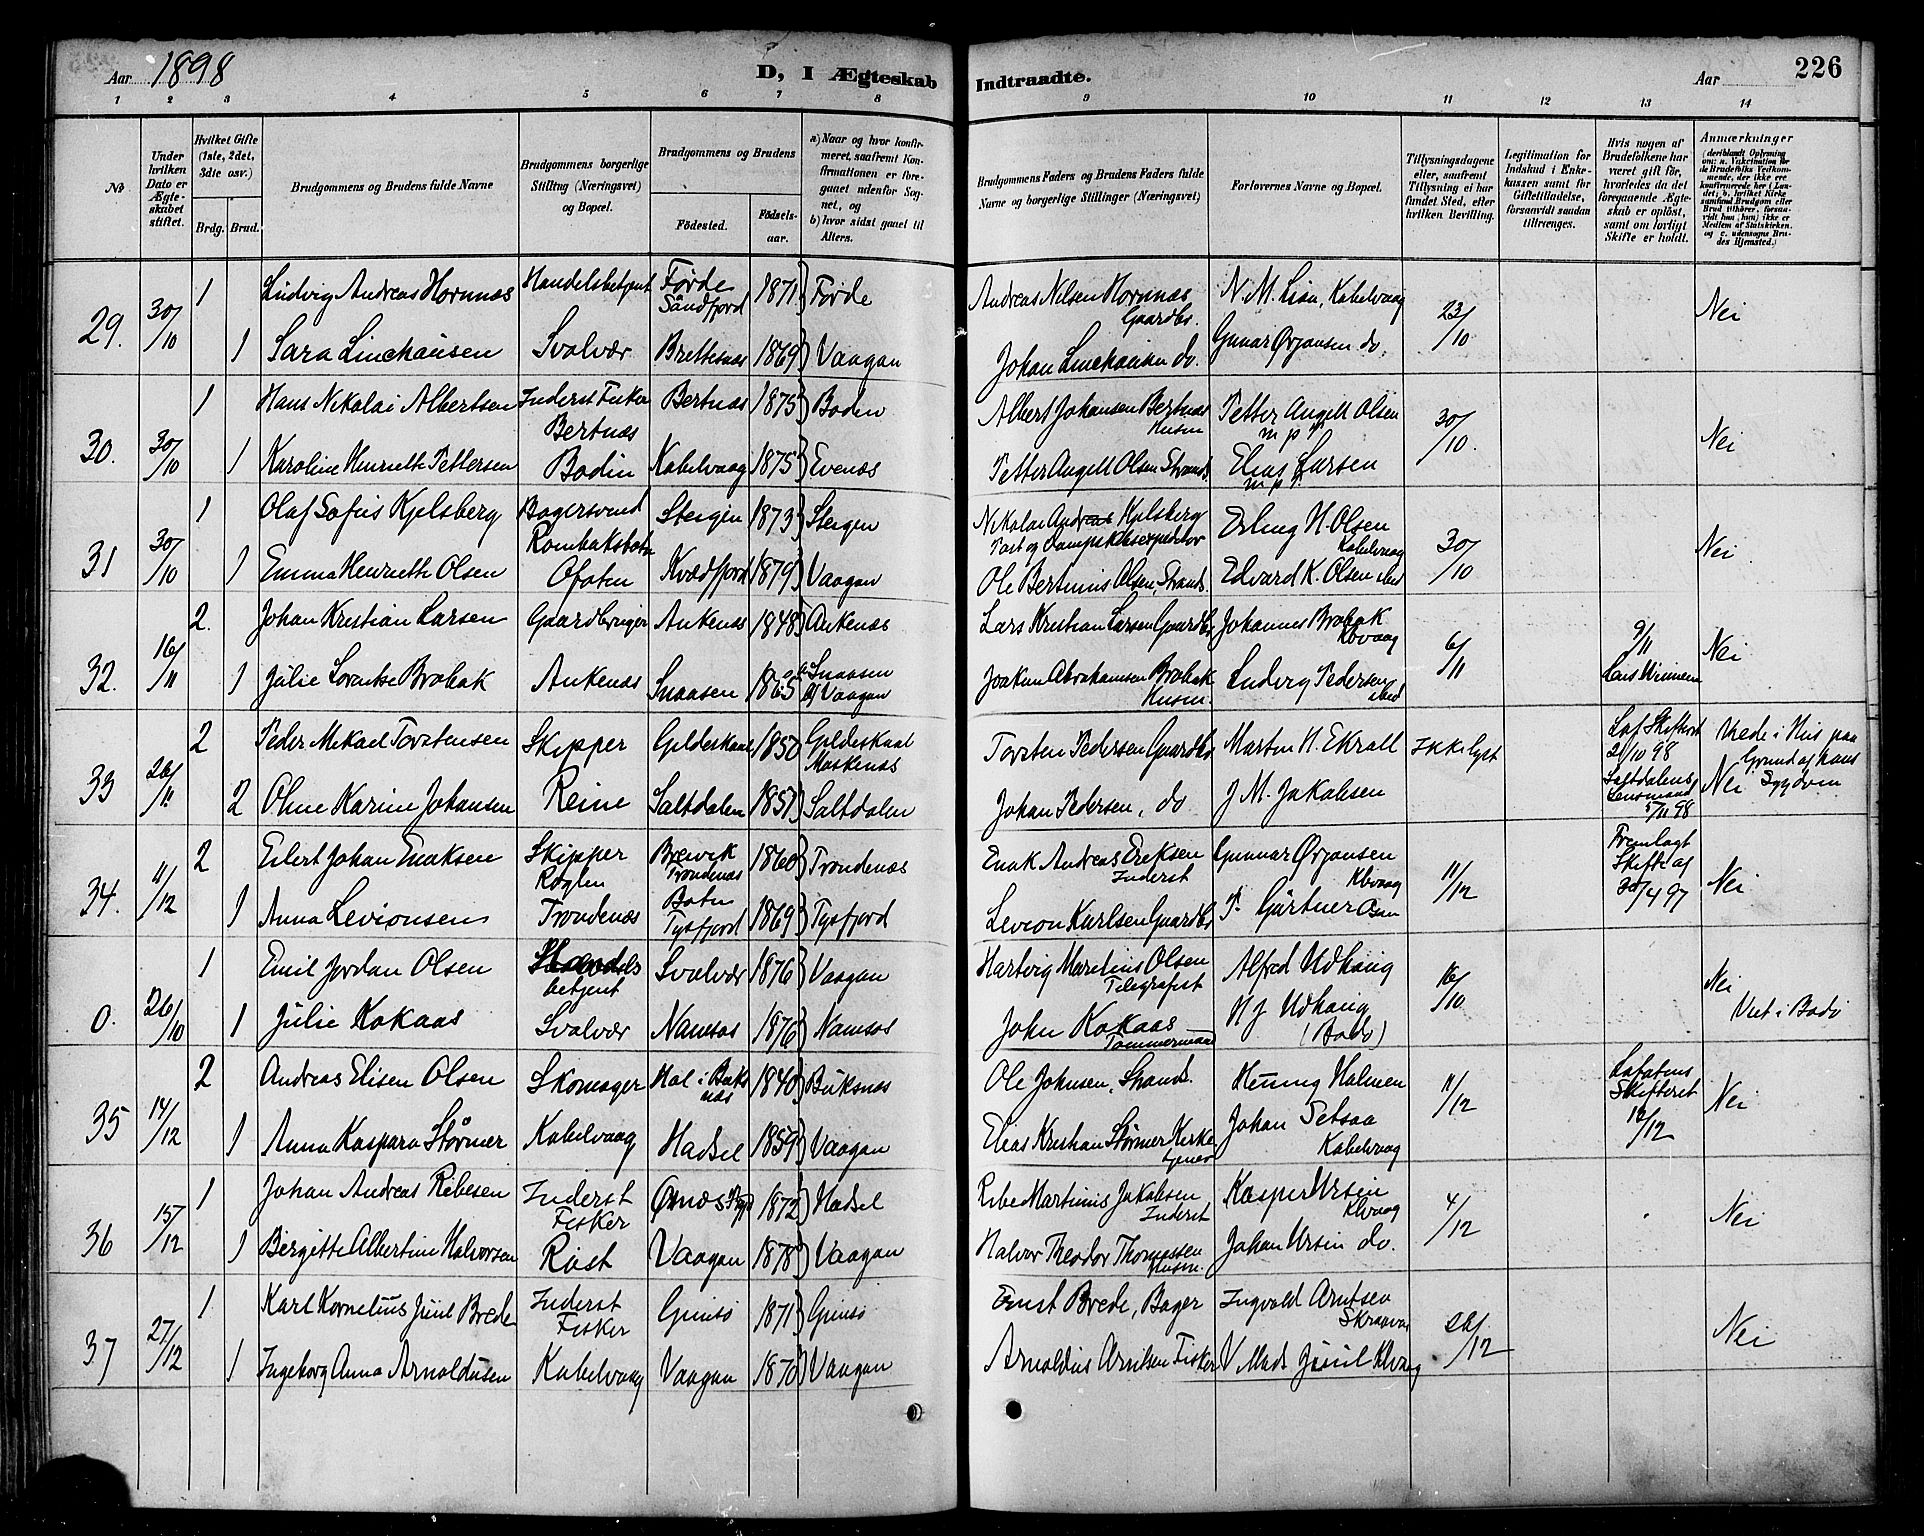 Aar 1898
D, I Ægteskab Indtraadte.
Aar
226
1 2 3 4 5 6 7 8 9 10 11 12 13 14
No
Under hvilken Dato er Ægteskabet stiftet.
Hvilket Gifte (1ste, 2det, 3die osv.)
Brdg. Brud.
Brudgommens og Brudens fulde Navne
Brudgommens borgerlige Stilling (Næringsvei) og Bopæl.
Brudgommens og Brudens
Fødested.
Fødselsaar.
a) Naar og hvor konfirmeret, saafremt Konfirmationen er foregaaet udenfor Sognet, og
b) hvor sidst gaaet til Alters.
Brudgommens Faders og Brudens Faders fulde Navne og borgerlige Stillinger (Næringsvei)
Forlovernes Navne og Bopæl.
Tillysningsdagene eller, saafremt Tillysning ei har fundet Sted, efter hvilken Bevilling.
Legitimation for Indskud i Enkekassen samt for Giftetilladelse, forsaavidt saadan tiltrænges.
Hvis nogen af Brudefolkene har været gift før, hvorledes da det foregaaende Ægteskab er opløst, samt om lovligt Skifte er holdt.
Anmærkninger
29. 30/10 1 Ludvig Andreas Hornnæs Handelsbetjent Førde Søndfjord 1871 Førde Andreas Nilsen Hornnæs Gaardbr. N. M. Lian, Kabelvaag 23/10 Nei
1 Sara Linchausen Svolvær Brettesnæs 1869 Vaagan Johan Linchausen do. Gunar Ørjansen do.
30. 30/10 1 Hans Nikolai Albertsen Inderst Fisker Bertnæs 1875 Bodin Albert Johansen Bertnæs Husm Petter Angell Olsen m p P. 30/10. Nei
1 Karoline Henriette Pettersen Bertnæs Bodin Kabelvaag 1875 Evenæs Petter Angell Olsen Strands. Elias Larsen m p P.
31 30/10 1 Olaf Sofus Kjelsberg Bagersvend Steigen 1873 Steigen Nikolai Andreas Kjelsberg Post og Dampskibsexpeditør Erling H. Olsen Kabelvaag 30/10 Nei
1 Emma Henriette Olsen Rombaksbotn Ofoten Kvædfjord 1879 Vaagan Ole Bertinius Olsen, Strands. Edvard K. Olsen ibid
32. 16/11 2. Johan Kristian Larsen Gaardbruger Ankenæs 1848 Ankenæs Lars Kristian Larsen Gaardbr Johannes Brobak Kbvaag 6/11 9/11 Nei
1 Julie Lorentse Brobak Ankenæs Snaasen 1865 a) Snaasen b) Vaagan Joakim Abrahamsen Brobak Husm. Ludvig Pedersen ibid
33 26/11 2 Peder Mikael Torstensen Skipper Gildeskaal 1850 Gildeskaal Moskenæs Torsten Pedersen Gaardbr Marten H. Ekroll Ikke lyst Lof. Skifteret 21/10 98 Viede i Hus paa Grund af hans Sygdom
2 Oline Karine Johansen Reine Saltdalen 1851 Saltdalen Johan Pedersen, do J. M. Jakobsen Saltdalens Lensmand 5/11 98 Nei
34. 11/12 2 Eilert Johan Enoksen Skipper Brevik Trondenæs 1860 Trondenæs Enok Andreas Eriksen Inderst Gunnar Ørjansen Kbvaag 11/12 Fremlagt Skifte af 30/4 97 Nei
1 Anna Levionsen Roglen Trondenæs Botn Tysfjord 1869 Tysfjord Levion Karlsen Gaardbr P. Gärtner
0. 26/10 1 Emil Jordan Olsen Handelsbetjent Svolvær 1876 Vaagan Hartvig Martinius Olsen Telegrafist Alfred Udhaug 16/10 Nei
1 Julie Kokaas Svolvær Namsos 1876 Namsos John Kokaas Tømmermand H J Udhaug (Bodø) Viet i Bodø
35 14/12 2 Andreas Elisen Olsen Skomager Hol i Buksnæs 1840 Buksnæs Ole Johnsen, Strands. Henning Halmen 11/12 Lofotens Skifteret 12/12 Nei
1 Anna Kaspara Størmer Kabelvaag Hadsel 1859 Vaagan Elias Kristian Størmer Kirketjener Johan Setsaa Kabelvaag
36 15/12 1 Johan Andreas Ribesen Inderst Fisker Ørnæs 1872 Hadsel Ribe Martinius Jakobsen Inderst Kasper Ursin Kbvaag 4/12 Nei
1 Birgitte Albertine Halvorsen Røst Vaagan 1878 Vaagan Halvor Theodor Thomassen Husm. Johan Ursin do.
37 27/12 1 Karl Kornelius Juul Brede Inderst Fisker Gimsø 1871 Gimsø Ernst Brede, Bager Ingvald Arntsen Skraaven 26/12 Nei
1 Ingeborg Anna Arnoldusen Kabelvaag Vaagan 1870 Vaagan Arnoldus Arnilsen Fisker V. Mads Juul Kbvaag